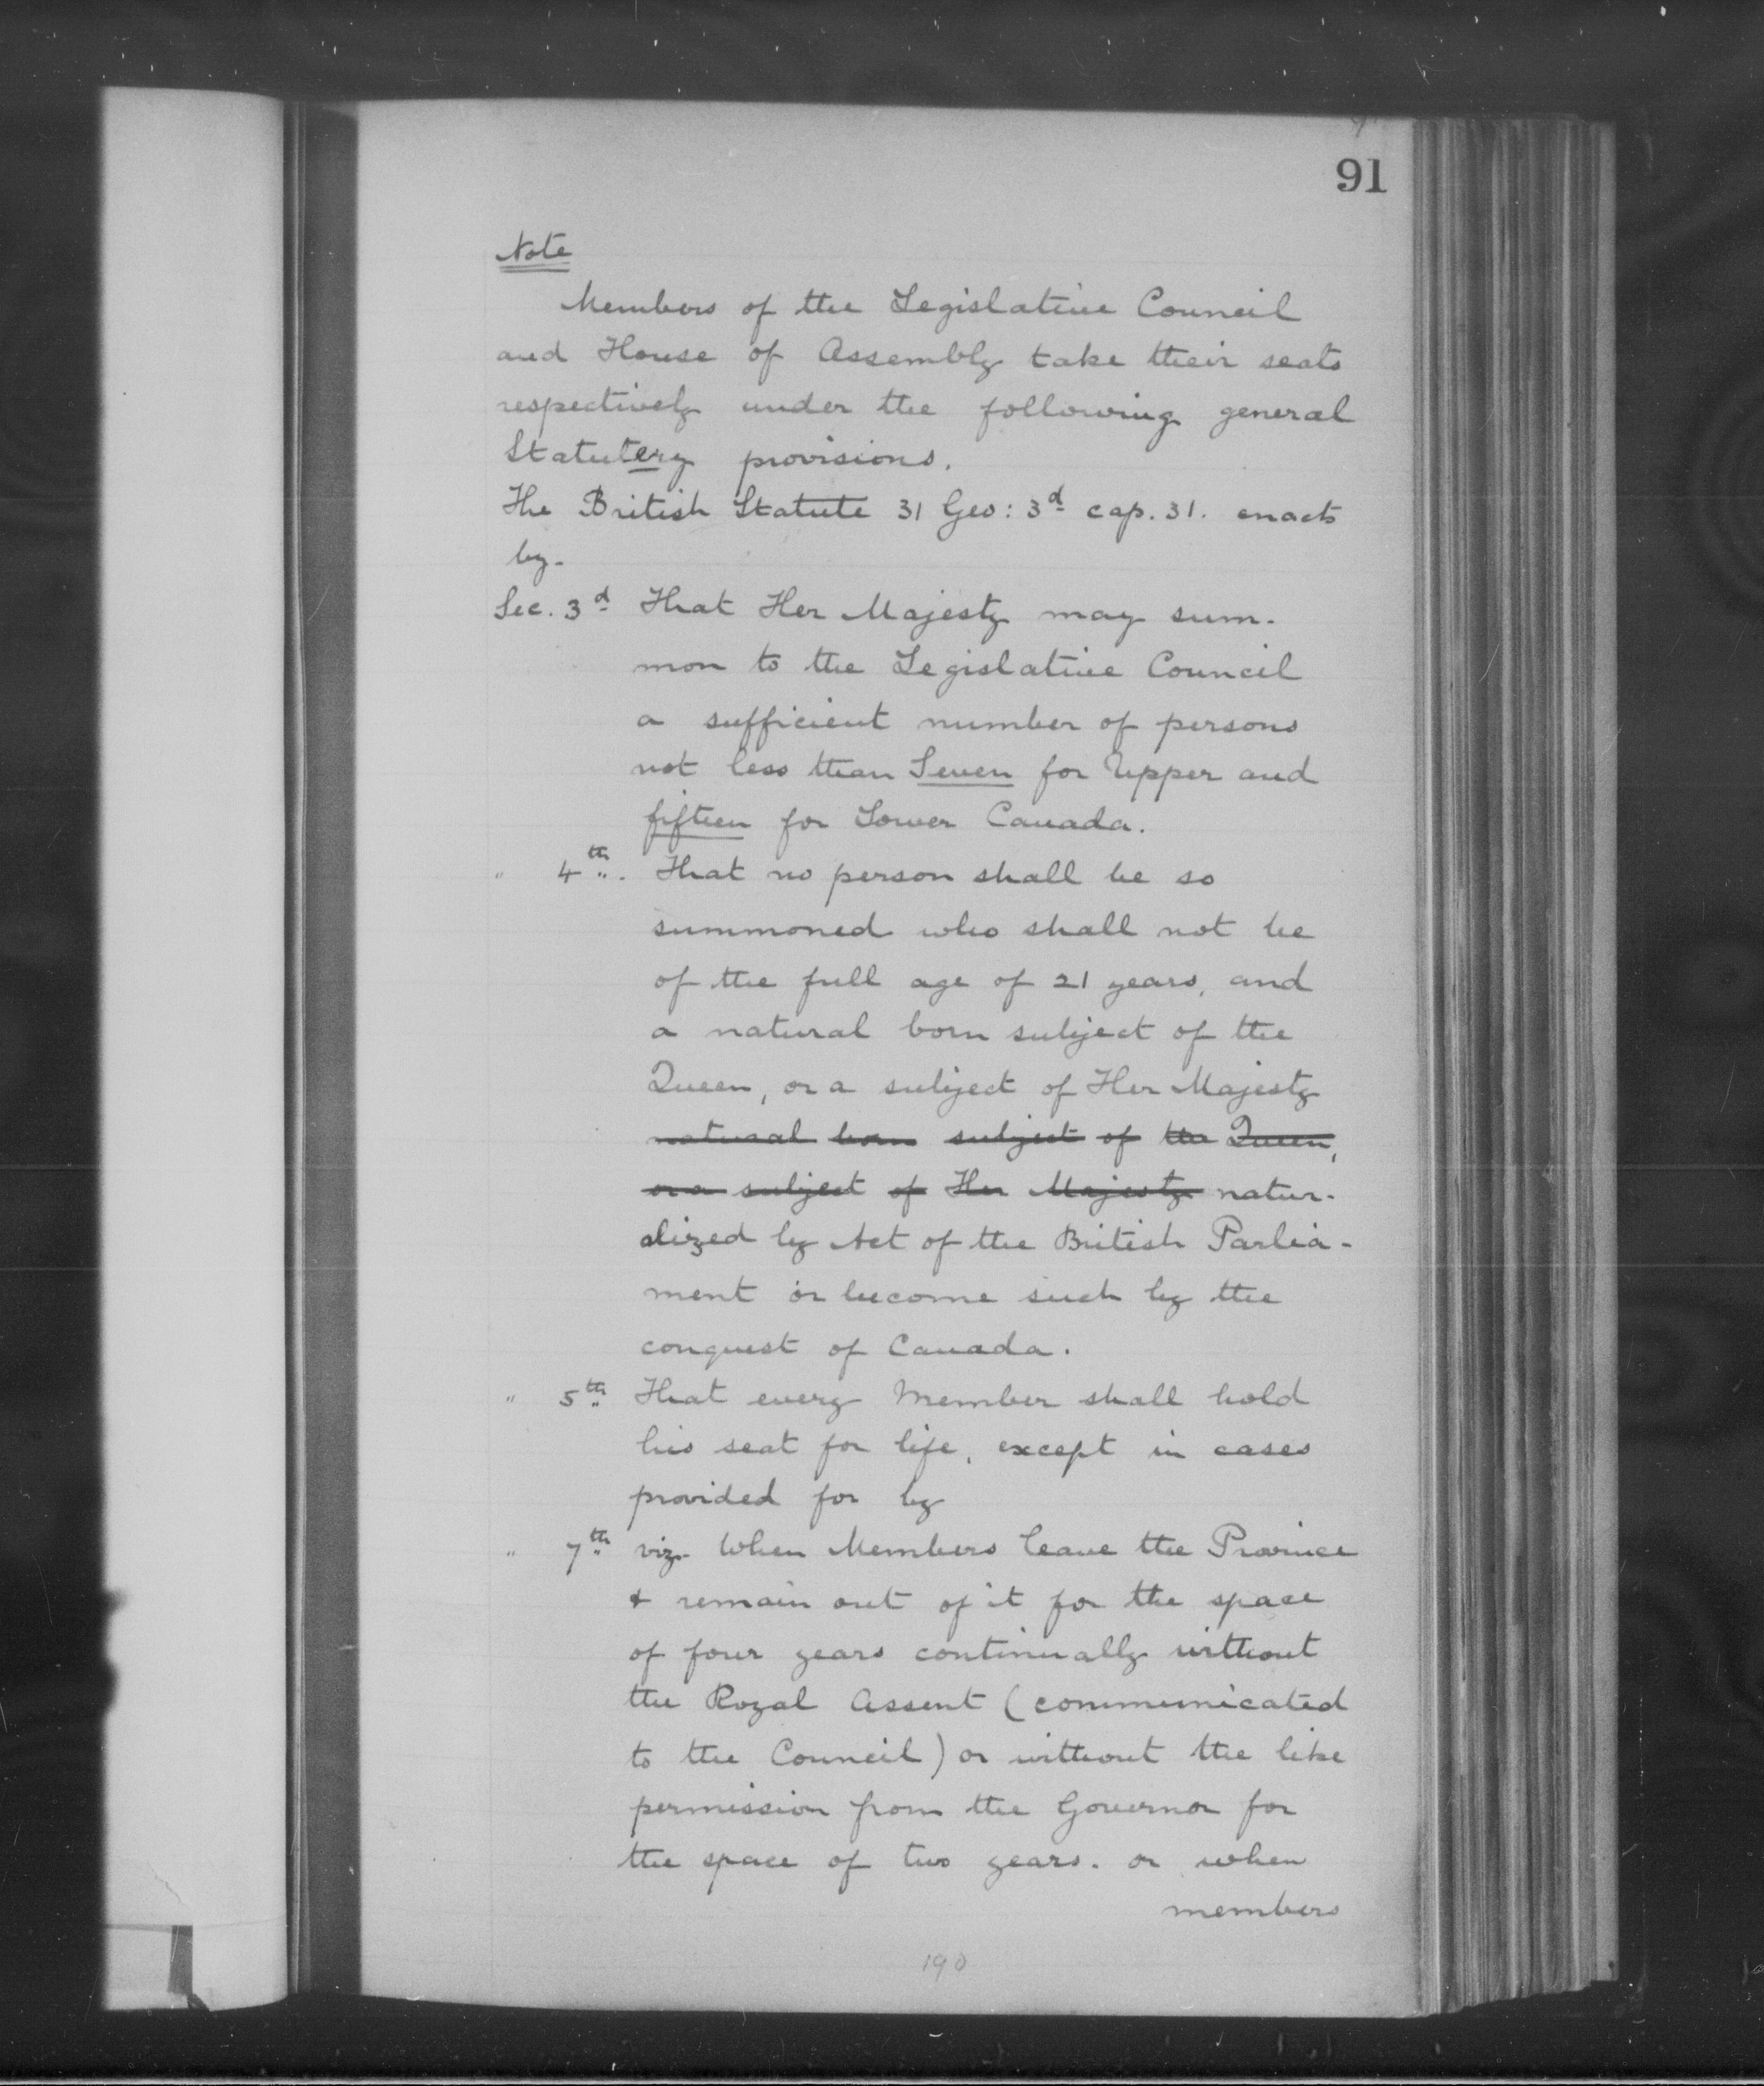 91
Note
Members of the Legislative Council
and House of Assembly take their seats
respectively under the following general
Statutery provisions.
The British Statute 31 Geo: 3d cap. 31. enacts
by-
Sec. 3d That Her Majesty may sum-
mon to the Legislative Council
a sufficient number of persons
not less than Seven for Upper and
fifteen for Lower Canada.
" 4th. That no person shall be so
summoned who shall not be
of the full age of 21 years, and
a natural born subject of the
Queen, or a subject of Her Majesty
natural born subject of the Queen,
or a subject of Her Majesty natur-
alized by Act of the British Parlia-
ment or become such by the
conquest of Canada.
" 5th That every Member shall hold
his seat for life, except in cases
provided for by
" 7th viz. When Members leave the Province
& remain out of it for the space
of four years continually without
the Royal Assent (communicated
to the Council) or without the like
permission from the Governor for
the space of two years. or when
members
190